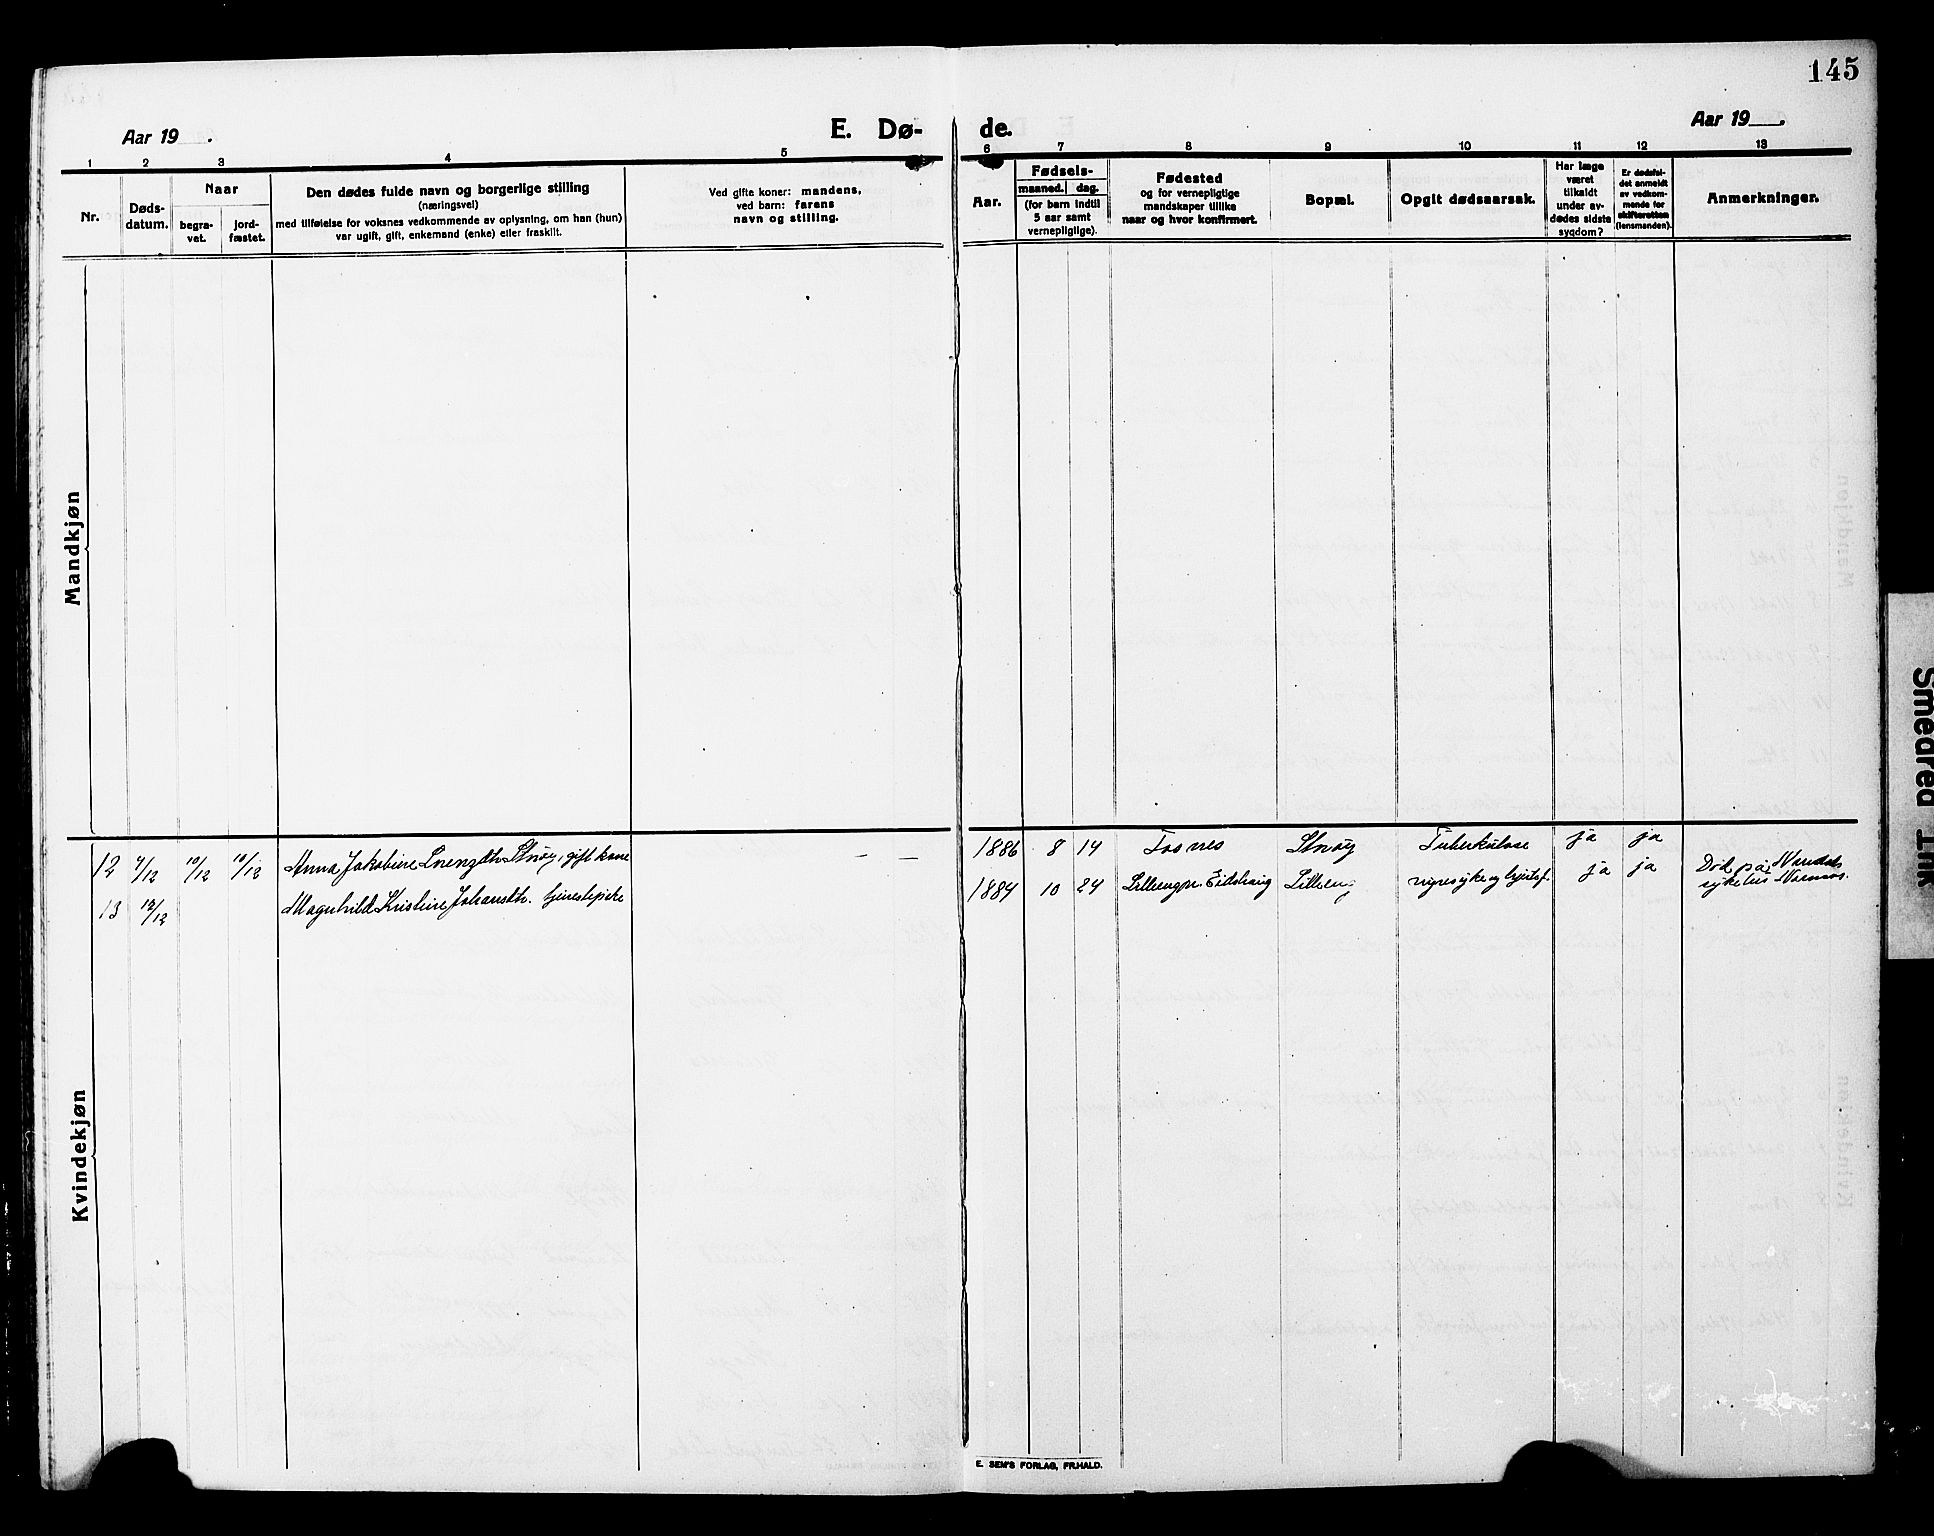 145
Aar 19
E. Dø-
de.
Aar 19
1 2 3 4 5 6 7 8 9 10 11 12 13
Nr.
Døds-
datum.
Naar
begra-
vet.
jord-
fæstet.
Den dødes fulde navn og borgerlige stilling
(næringsvei)
med tilføielse for voksnes vedkommende av oplysning, om han (hun)
var ugift, gift, enkemand (enke) eller fraskilt.
Ved gifte koner: mandens,
ved barn: farens
navn og stilling.
Aar.
Fødsels-
maaned. dag.
(for barn indtil
5 aar samt
vernepligtige).
Fødested
og for vernepligtige
mandskaper tillike
naar og hvor konfirmert.
Bopæl.
Opgit dødsaarsak.
Har læge
været
tilkaldt
under av-
dødes sidste
sygdom?
Er dødsfal-
det anmeldt
av vedkom-
mende for
skifteretten
(lensmanden).
Anmerkninger.
Mandkjøn
Kvindekjøn
12 7/12 10/12 10/12 Anna Jakobine Strøy, gift kone — — 1886 8 14 Fosnes Strøy Tuberkulose ja ja
13 12/12 Magnhild Kristine Johansdtr. tjenestepike 1884 10 24 Eidshaug Lilleeng nyresyke og ja ja Død på
sykehus Namsos.
E. SEM'S FORLAG, FR.HALD.
Smedred Trik